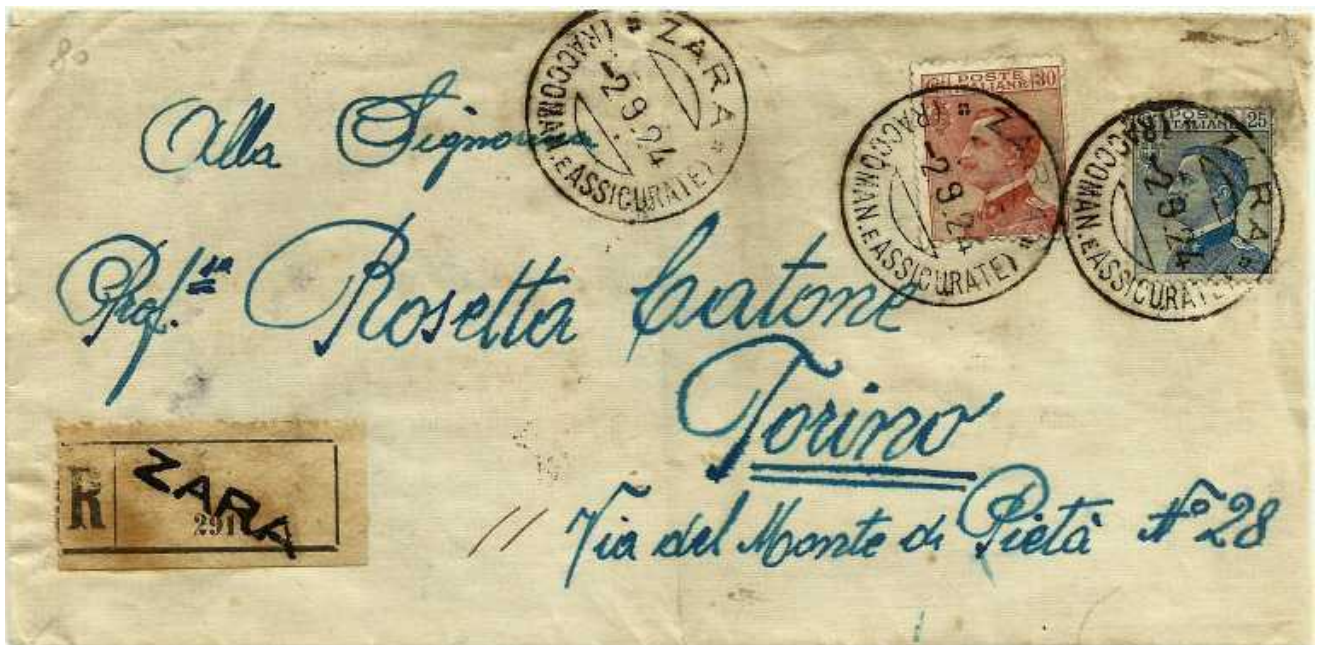 80
ZARA
(RACCOMAN. E ASSICURATE)
-2.9.24
POSTE ITALIANE 30
ZARA
(RACCOMAN. E ASSICURATE)
-2.9.24
POSTE ITALIANE 25
ZARA
(RACCOMAN. E ASSICURATE)
-2.9.24
Alla Signorina
Prof.ssa Rosetta Catone
Torino
Via del Monte di Pietà N° 28
R ZARA
291